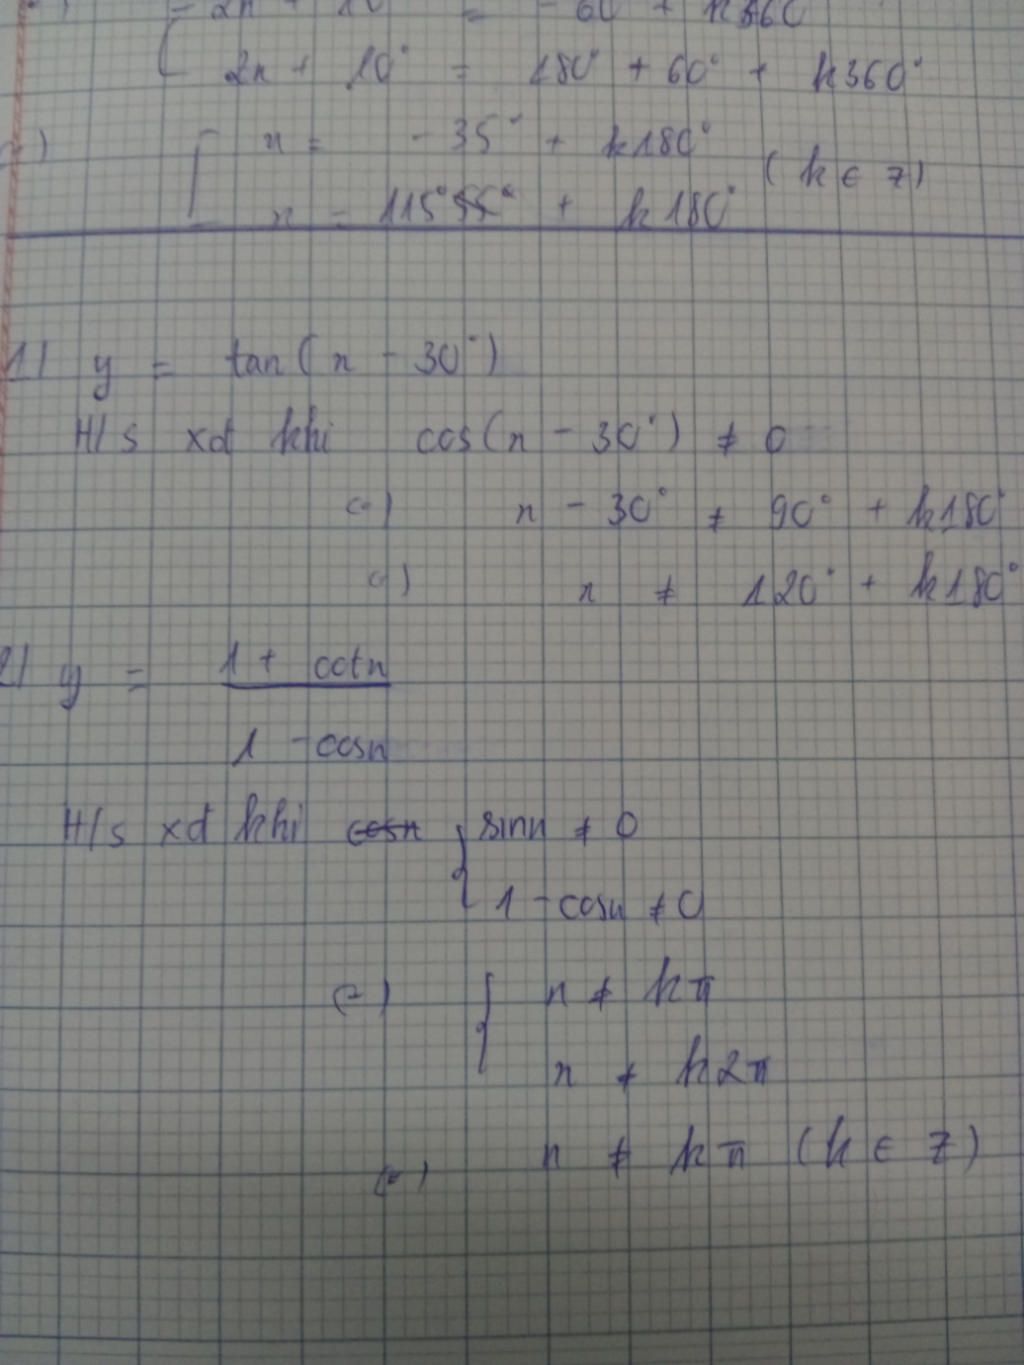 - 2x + 10 = - 60 + k360
2x + 10° = 180° + 60° + k360°
x = - 35° + k180°
(k ∈ Z)
x = 115° + k180°
1) y = tan(x - 30°)
H/s xđ khi cos(x - 30°) ≠ 0
(=) x - 30° ≠ 90° + k180°
(=) x ≠ 120° + k180°
2) y = 1 + cotx
1 - cosx
H/s xđ khi cosx { sinx ≠ 0
1 - cosx ≠ 0
(=) { x ≠ kπ
x ≠ k2π
(=) x ≠ kπ (k ∈ Z)